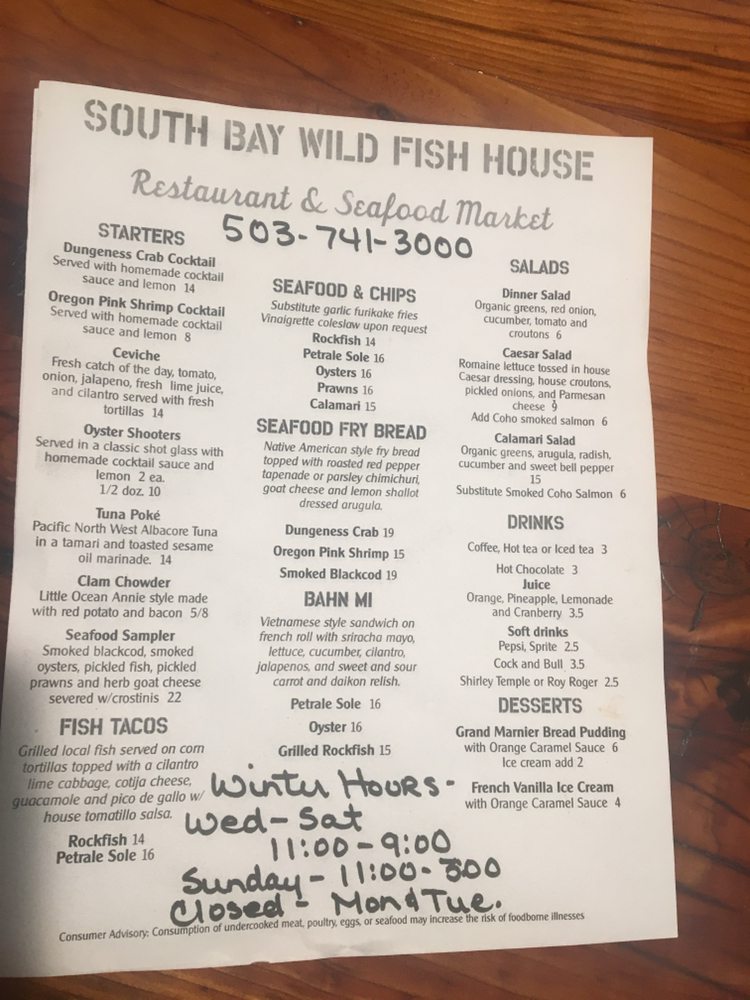 SOUTH BAY WILD FISH HOUSE
Restaurant & Seafood Market
503-741-3000
STARTERS
Dungeness Crab Cocktail
Served with homemade cocktail
sauce and lemon 14
Oregon Pink Shrimp Cocktail
Served with homemade cocktail
sauce and lemon 8
Ceviche
Fresh catch of the day, tomato,
onion, jalapeno, fresh lime juice,
and cilantro served with fresh
tortillas 14
Oyster Shooters
Served in a classic shot glass with
homemade cocktail sauce and
lemon 2 ea.
1/2 doz. 10
Tuna Poké
Pacific North West Albacore Tuna
in a tamari and toasted sesame
oil marinade. 14
Clam Chowder
Little Ocean Annie style made
with red potato and bacon 5/8
Seafood Sampler
Smoked blackcod, smoked
oysters, pickled fish, pickled
prawns and herb goat cheese
severed w/crostinis 22
FISH TACOS
Grilled local fish served on corn
tortillas topped with a cilantro
lime cabbage, cotija cheese,
guacamole and pico de gallo w/
house tomatillo salsa.
Rockfish 14
Petrale Sole 16
SEAFOOD & CHIPS
Substitute garlic furikake fries
Vinaigrette coleslaw upon request
Rockfish 14
Petrale Sole 16
Oysters 16
Prawns 16
Calamari 15
SEAFOOD FRY BREAD
Native American style fry bread
topped with roasted red pepper
tapenade or parsley chimichuri,
goat cheese and lemon shallot
dressed arugula.
Dungeness Crab 19
Oregon Pink Shrimp 15
Smoked Blackcod 19
BAHN MI
Vietnamese style sandwich on
french roll with sriracha mayo,
lettuce, cucumber, cilantro,
jalapenos, and sweet and sour
carrot and daikon relish.
Petrale Sole 16
Oyster 16
Grilled Rockfish 15
SALADS
Dinner Salad
Organic greens, red onion,
cucumber, tomato and
croutons 6
Caesar Salad
Romaine lettuce tossed in house
Caesar dressing, house croutons,
pickled onions, and Parmesan
cheese 9
Add Coho smoked salmon 6
Calamari Salad
Organic greens, arugula, radish,
cucumber and sweet bell pepper
15
Substitute Smoked Coho Salmon 6
DRINKS
Coffee, Hot tea or Iced tea 3
Hot Chocolate 3
Juice
Orange, Pineapple, Lemonade
and Cranberry 3.5
Soft drinks
Pepsi, Sprite 2.5
Cock and Bull 3.5
Shirley Temple or Roy Roger 2.5
DESSERTS
Grand Marnier Bread Pudding
with Orange Caramel Sauce 6
Ice cream add 2
French Vanilla Ice Cream
with Orange Caramel Sauce 4
Winter Hours-
Wed-Sat
11:00-9:00
Sunday-11:00-300
Closed- Mon & Tue.
Consumer Advisory: Consumption of undercooked meat, poultry, eggs, or seafood may increase the risk of foodborne illnesses